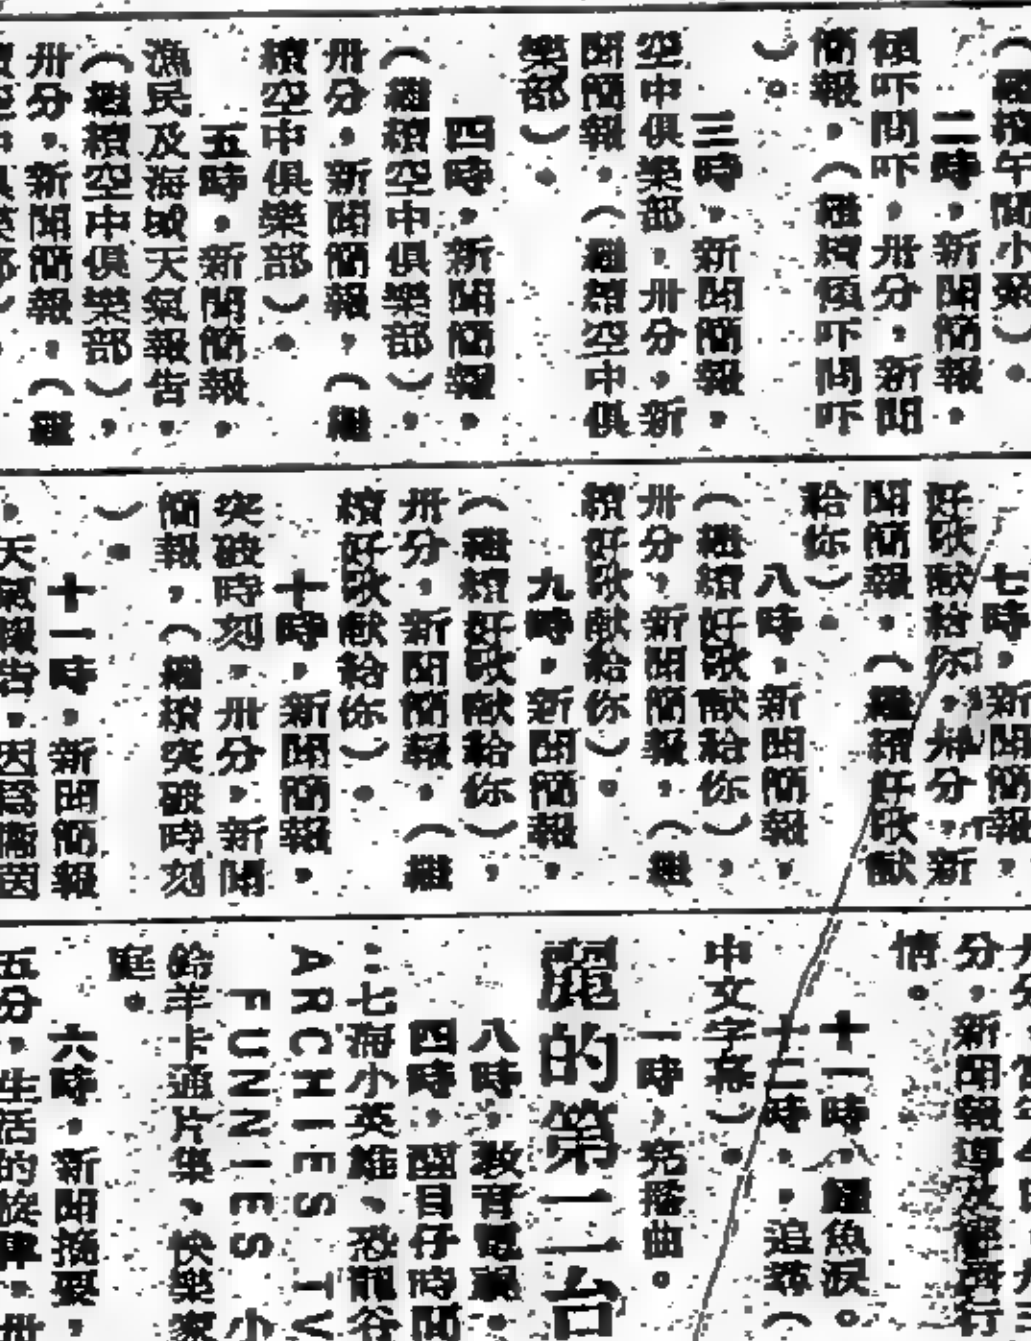 (繼續午間小聚)。
二時，新聞簡報，
傾吓問吓，卅分，新聞
簡報，(繼續傾吓問吓
)。
三時，新聞簡報，
空中俱樂部，卅分，新
聞簡報，(繼續空中俱
樂部)。
四時，新聞簡報，
(繼續空中俱樂部)，
卅分，新聞簡報，(繼
續空中俱樂部)。
五時，新聞簡報，
漁民及海域天氣報告，
(繼續空中俱樂部)，
卅分，新聞簡報，(繼
七時，新聞簡報，
好歌獻給你，卅分，新
聞簡報，(繼續好歌獻
給你)。
八時，新聞簡報，
(繼續好歌獻給你)，
卅分，新聞簡報，(繼
續好歌獻給你)。
九時，新聞簡報，
(繼續好歌獻給你)，
卅分，新聞簡報，(繼
續好歌獻給你)。
十時，新聞簡報，
突破時刻，卅分，新聞
簡報，(繼續突破時刻
)。
十一時，新聞簡報
，天氣報告，因為
分，新聞報導及經濟行
情。
十一時，鱷魚淚。
十二時，追尋(
中文字幕)。
一時，完播曲。
麗的第二台
八時，教育電視：
四時，國目仔時間
：七海小英雄、恐龍谷
ARCHIES TV
FUNNIES 小
羚羊卡通片集、快樂家
庭。
六時，新聞撮要，
五分，生活的旋律，卅